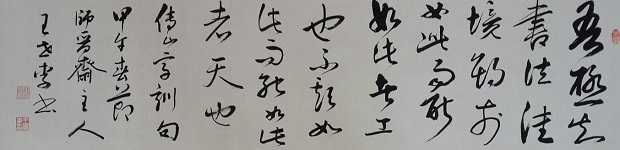 吾極知
書法佳
境第於
如此而能
如此者工
也不能如
此而能如此
者天也
傅山字訓句
甲午春節
師晉齋主人